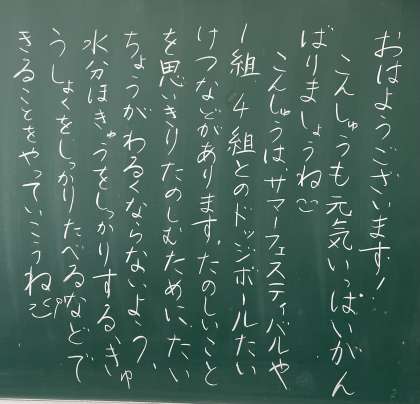 おはようございます!
こんしゅうも元気いっぱいがん
ばりましょうね
こんしゅうは、サマーフェスティバルや
1組、4組とのドッジボールたい
けつなどがあります。たのしいこと
を思いきりたのしむために、たい
ちょうがわるくならないよう、
水分ほきゅうをしっかりする、きゅ
うしょくをしっかりたべるなどで
きることをやっていこうね